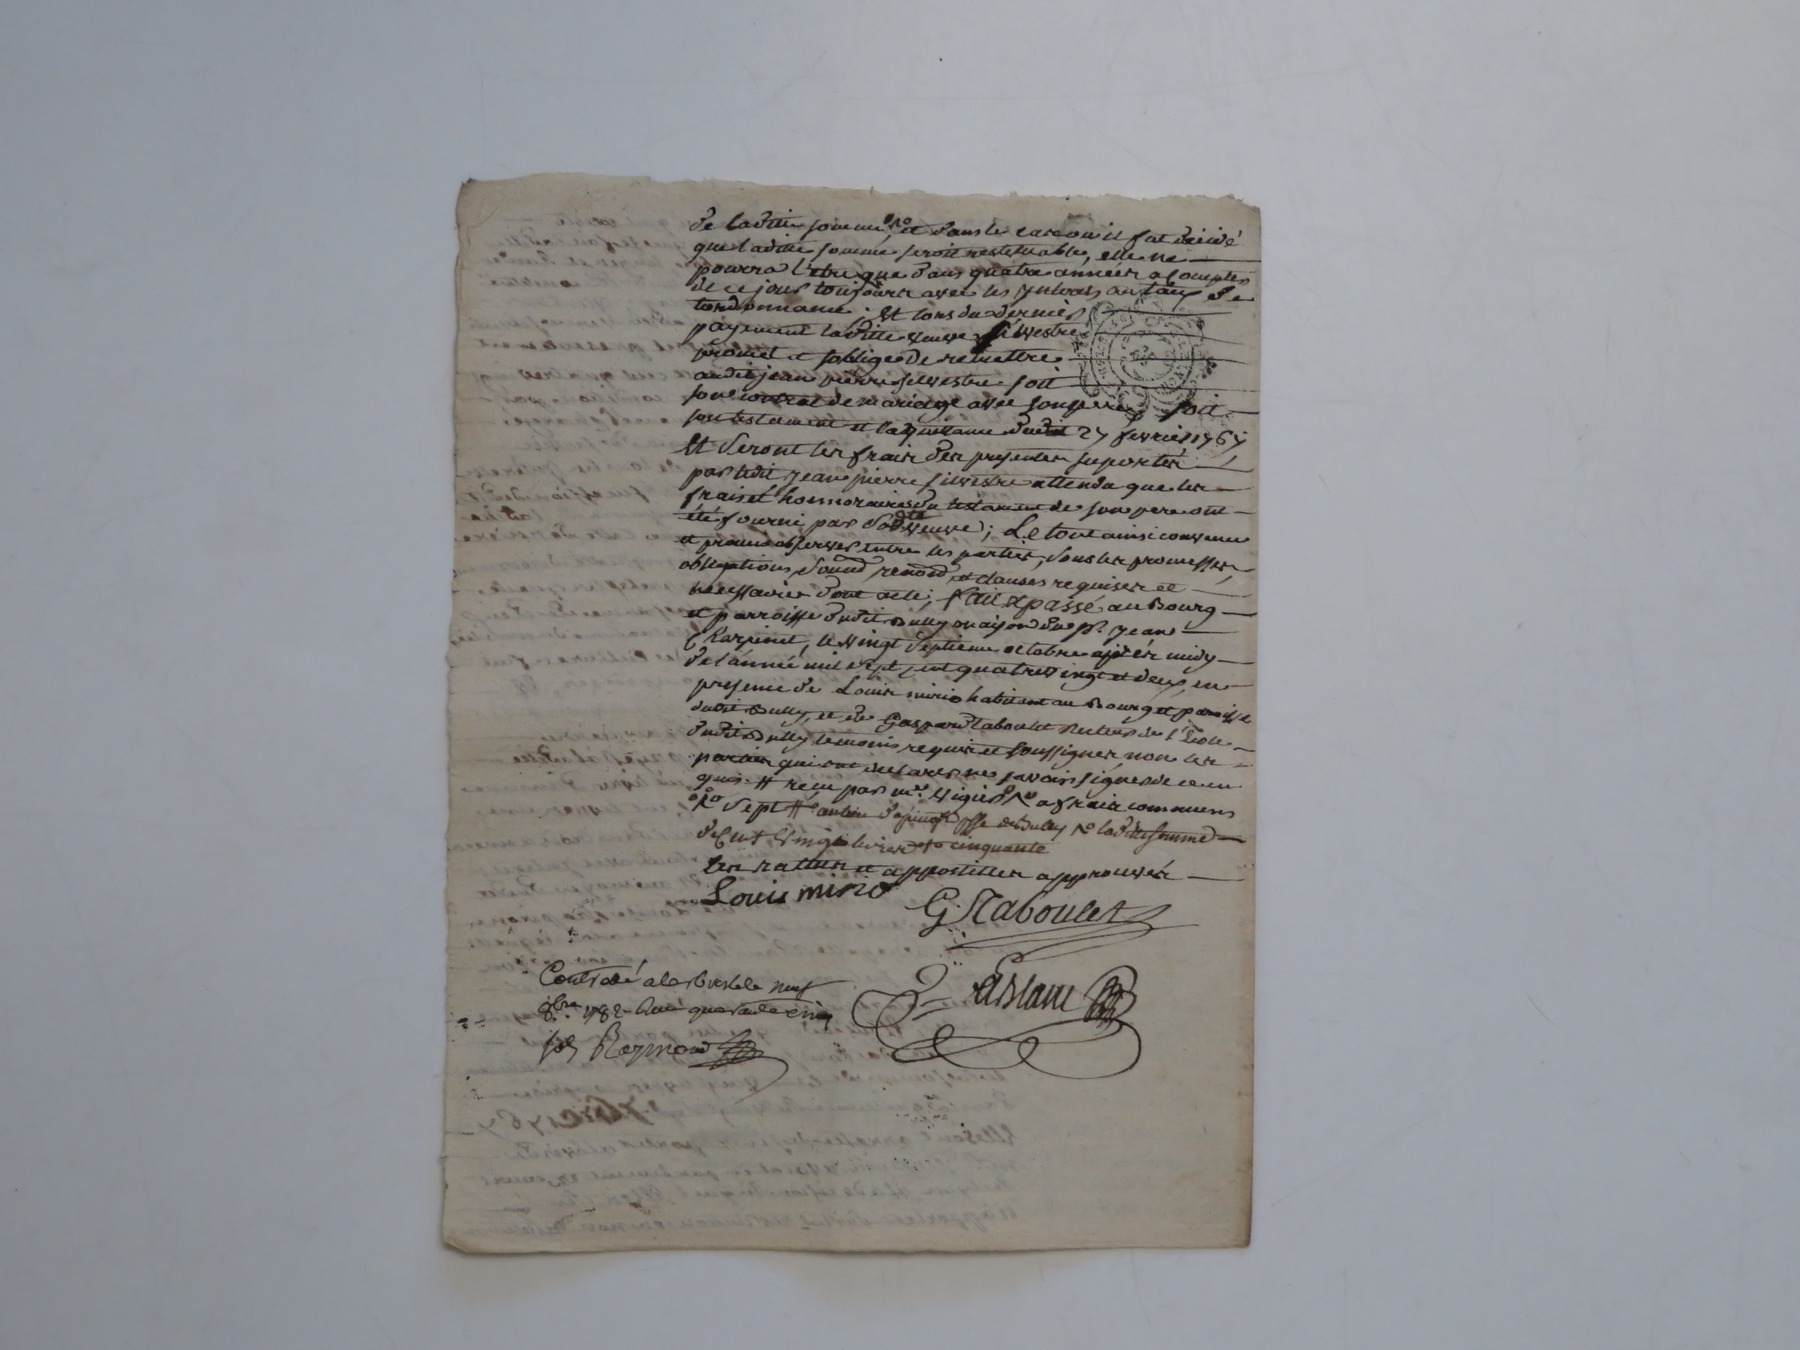 de ladite somme, et dans le cas ou il fut decidé
que ladite somme seroit restituable, elle ne
pourra l'etre que dans quatre années a compter
de ce jour toujours avec les ynterets au taux de
l'ordonnance; Et lors du dernier
payement ladite veuve silvestre
promet et soblige de remettre
audit jean pierre silvestre soit
son contrat de mariage avec son pere soit
son testament et la quittance dudit 27 fevrier 1767
Et seront les frais des presentes suportés
par ledit jean pierre silvestre attendu que les
frais et honnoraires du testament de son pere ont
été fourni par ladte veuve; Le tout ainsi convenu
et promis observer entre les parties, sous les promesses,
obligations, soumd renond et clauses requises et
necessaires dont acte; fait et passé au Bourg
et parroisse dudit Bully maison du sr. jean
Charpinet, le vingt septieme octobre après midy
de l'année mil sept cent quatrevingt et deux, en
presence de Louis mirio habitant au Bourg et paroisse
dudit Bully, et de Gaspard taboulet Recteur de l'Ecole
dudit Bully temoins requis et soussignes non les
parties qui ont declarés ne savoir signer de ce en
quis # recu par me. vigier no a frais communs
sept # ladite somme
de cent vingt livres cinquante
les ratures et appostilles approuvés
Louis mirio
G. Taboulet
Controlé a le neuf
9bre. 1782 Reçu quarante cinq
Raymond